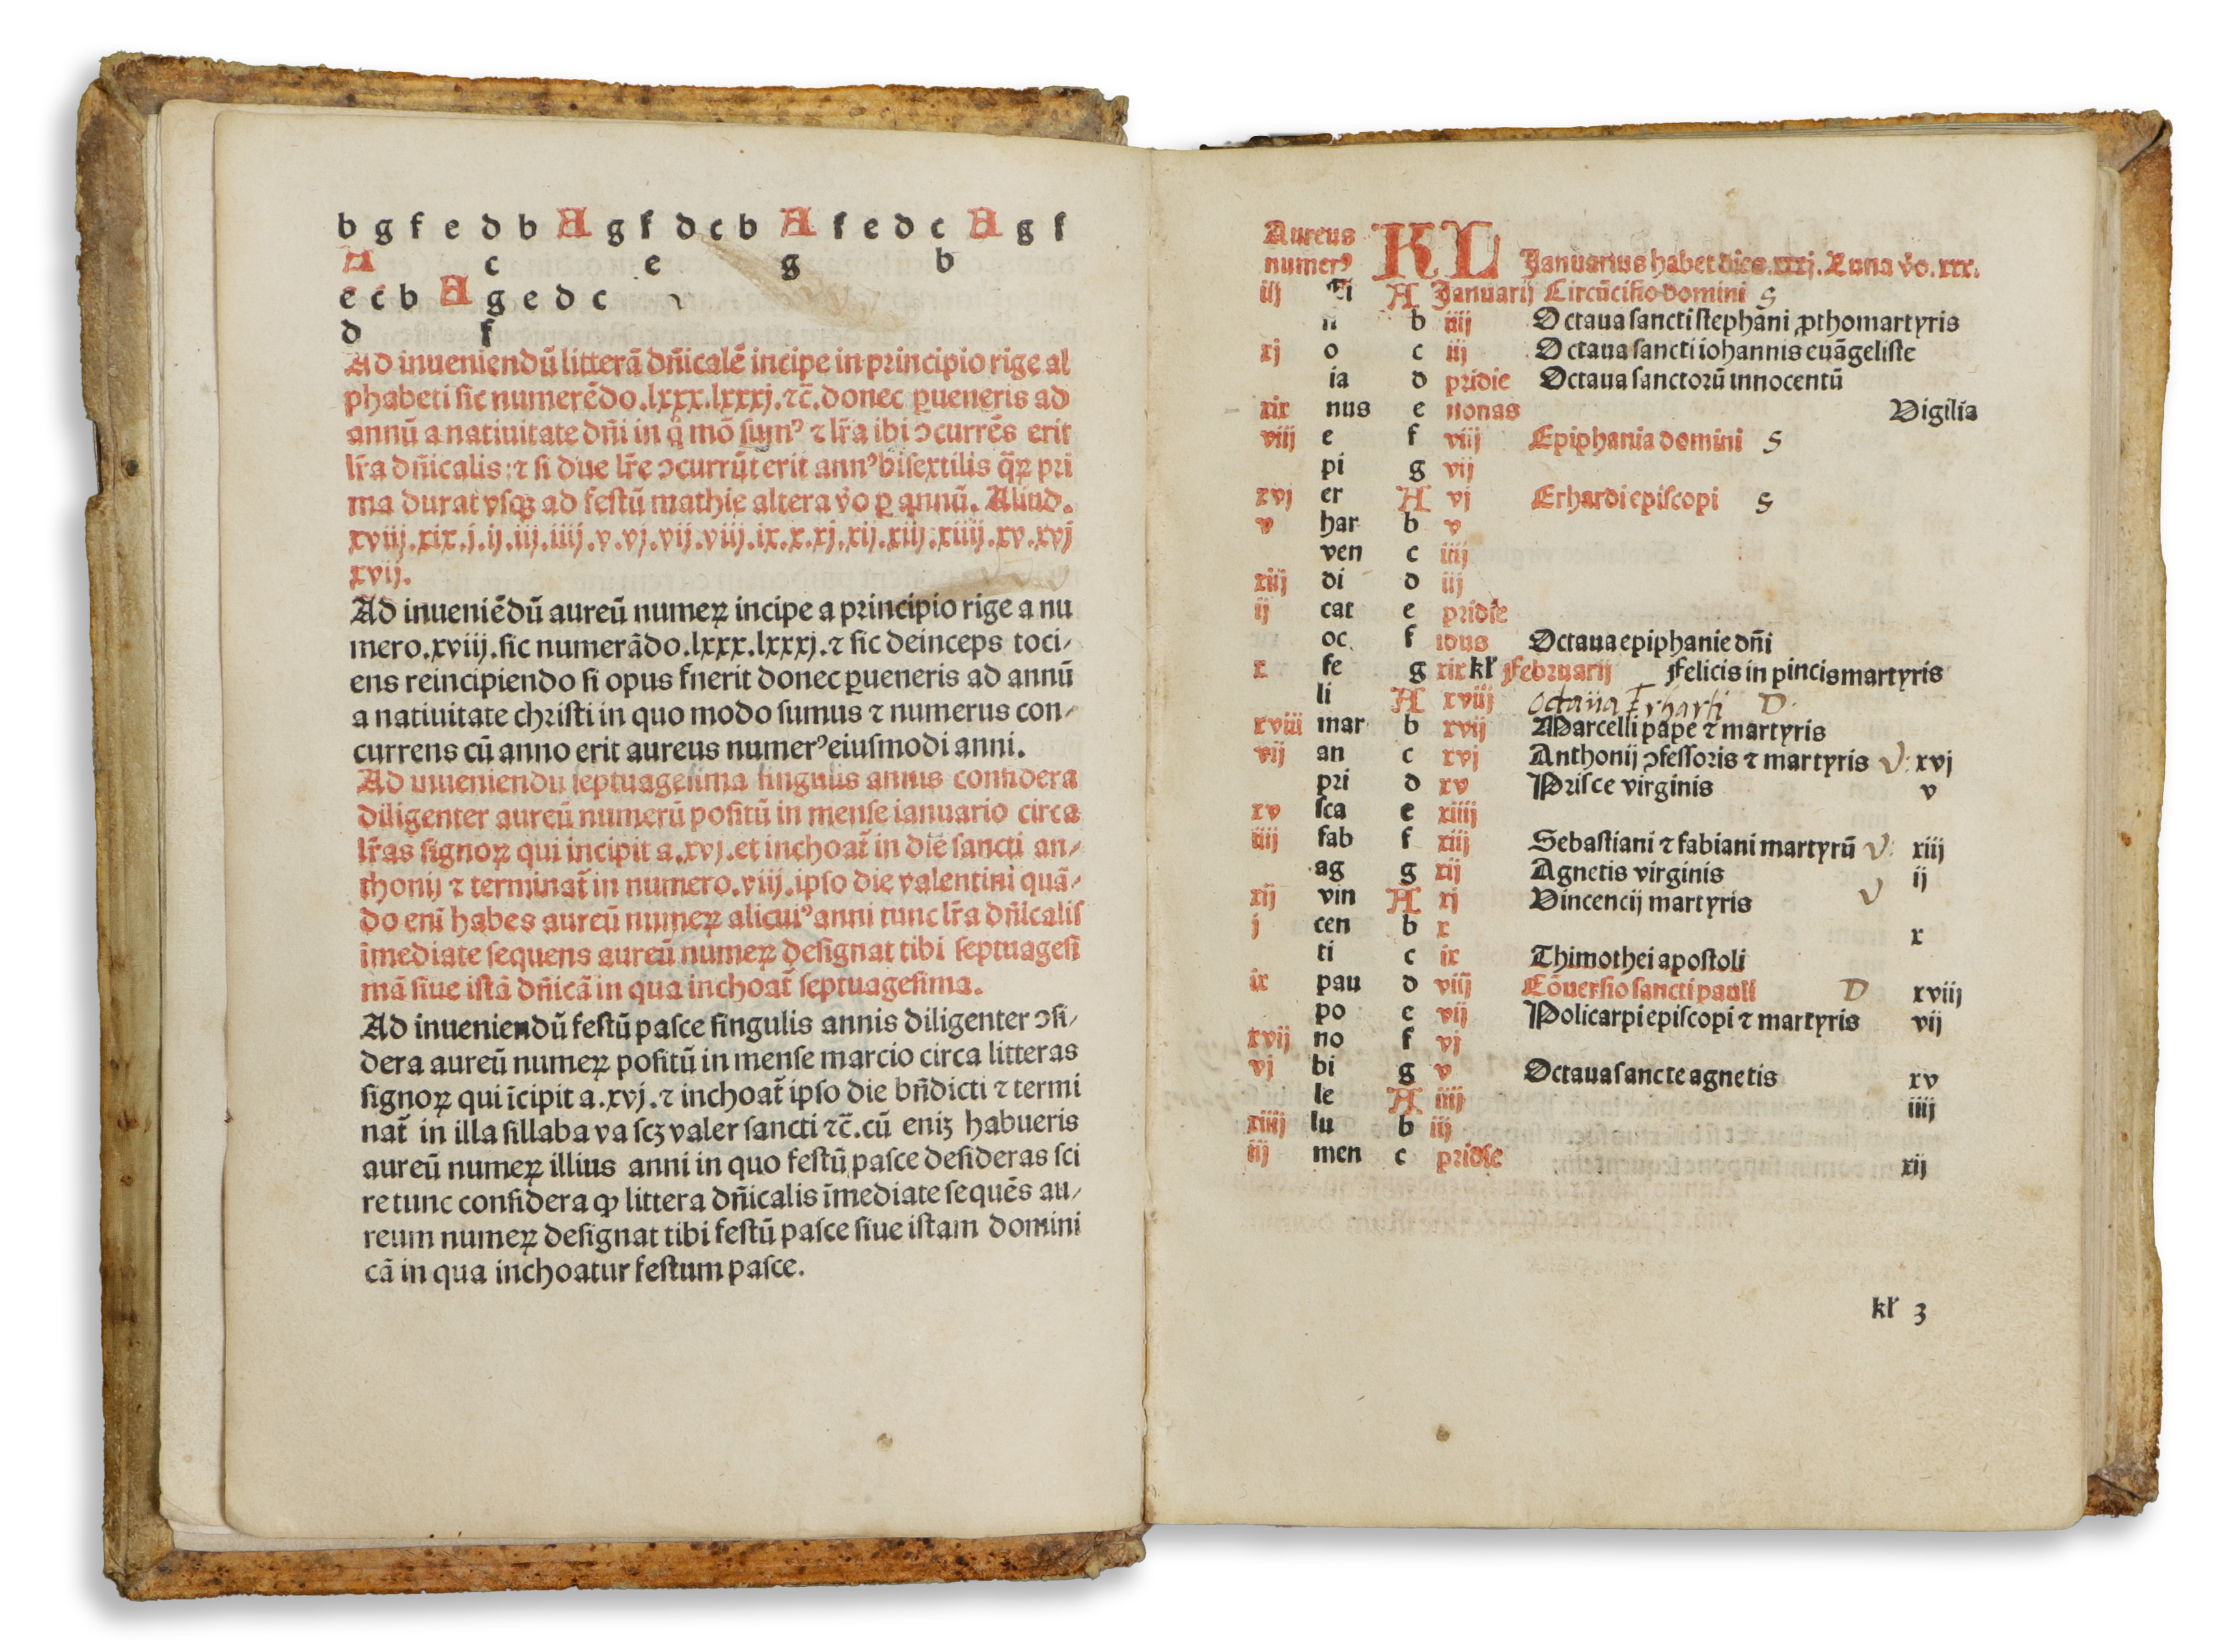 b g f e d b A g f d c b A f e d c A g f
A c e g b
e c b A g e d c
d f
Ad inueniendū litterā dn̄icalē incipe in principio rige al
phabeti sic numerēdo.lxxx.lxxxj.⁊c̄.donec ꝑueneris ad
annū a natiuitate dn̄i in q̊ mō sumꝰ ⁊ lr̄a ibi ɔcurrēs erit
lr̄a dn̄icalis:⁊ si due lr̄e ɔcurrūt erit annꝰ bisextilis q̄ꝝ pri
ma durat vsqꝫ ad festū mathie altera v̄o ꝑ annū. Aliud.
xviij.xix.j.ij.iij.iiij.v.vj.vij.viij.ix.x.xj.xij.xiij.xiiij.xv.xvj
xvij.
Ad inueniēdū aureū numeꝝ incipe a principio rige a nu
mero.xviij.sic numerādo.lxxx.lxxxj.⁊ sic deinceps toci⸗
ens reincipiendo si opus fnerit donec ꝑueneris ad annū
a natiuitate christi in quo modo sumus ⁊ numerus con⸗
currens cū anno erit aureus numerꝰ eiusmodi anni.
Ad inueniendu septuagesima singulis annis considera
diligenter aureū numerū positū in mense ianuario circa
lr̄as signoꝝ qui incipit a.xvj.et inchoat̄ in die sancti an⸗
thonij ⁊ terminat̄ in numero.viij.ipso die valentini quā⸗
do eni habes aureū numeꝝ alicuiꝰ anni tunc lr̄a dn̄icalis
īmediate sequens aureū numeꝝ designat tibi septuagesi
mā siue istā dn̄icā in qua inchoat̄ septuagesima.
Ad inueniendū festū pasce singulis annis diligenter ɔsi⸗
dera aureū numeꝝ positū in mense marcio circa litteras
signoꝝ qui īcipit a.xvj.⁊ inchoat̄ ipso die bn̄dicti ⁊ termi
nat̄ in illa sillaba va scꝫ valer sancti ⁊c̄.cū eniꝫ habueris
aureū numeꝝ illius anni in quo festū pasce desideras sci
re tunc considera ꝙ littera dn̄icalis īmediate sequēs au⸗
reum numeꝝ designat tibi festū pasce siue istam domini
cā in qua inchoatur festum pasce.
Aureus numerꝰ KL Januarius habet dies.xxxj.Luna v̄o.xxx.
iij Ci A Januarij Circūcisio domini S
si b iiij Octaua sancti stephāni ꝓthomartyris
xj o c iij Octaua sancti iohannis euāgeliste
ia d pridie Octaua sanctorū innocentū
xix nus e nonas Vigilia
viij e f viij Epiphania domini S
pi g vij
xvj er A vj Erhardi episcopi S
v har b v
ven c iiij
xiij di d iij
ij cat e pridie
oc f idus Octaua epiphanie dn̄i
x fe g xix kł Februarij Felicis in pincis martyris
li A xviij octaua Erharti D.
xviij mar b xvij Marcelli pape ⁊ martyris
vij an c xvj Anthonij ɔfessoris ⁊ martyris V: xvj
pri d xv Prisce virginis v
xv sca e xiiij
iiij fab f xiij Sebastiani ⁊ fabiani martyrū V: xiij
ag g xij Agnetis virginis ij
xij vin A xj Vincencij martyris V
j cen b x x
ti c ix Thimothei apostoli
ix pau d viij Cōuersio sancti pauli D xviij
po e vij Policarpi episcopi ⁊ martyris vij
xvij no f vj
vj bi g v Octaua sancte agnetis xv
le A iiij iiij
xiiij lu b iij
iij men c pridie xij
kł 3